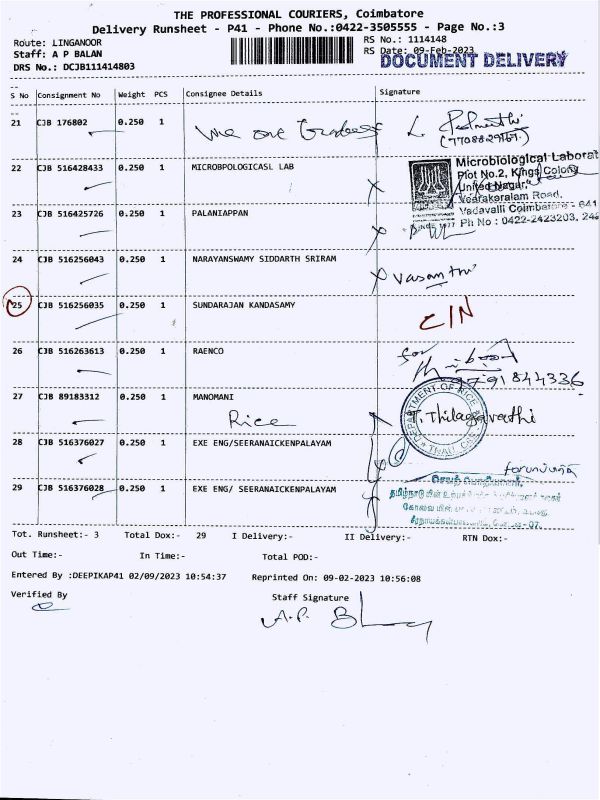 THE PROFESSIONAL COURIERS, Coimbatore
Delivery Runsheet - P41 - Phone No.:0422-3505555 - Page No.:3
Route: LINGANOOR
RS No.: 1114148
Staff: A P BALAN
RS Date: 09-Feb-2023
DOCUMENT DELIVERY
DRS No.: DCJB111414803
S No Consignment No Weight PCS Consignee Details Signature
21 CJB 176802 0.250 1 We are Traders
22 CJB 516428433 0.250 1 MICROBPOLOGICASL LAB
Microbiological Laborat
Plot No.2, Kings Colony
United Nagar,
Veerakeralam Road,
Vadavalli Coimbatore - 641
SINCE 1977 Ph No : 0422-2423203, 246
23 CJB 516425726 0.250 1 PALANIAPPAN
24 CJB 516256043 0.250 1 NARAYANSWAMY SIDDARTH SRIRAM Vasanthi
25 CJB 516256035 0.250 1 SUNDARAJAN KANDASAMY C/N
26 CJB 516263613 0.250 1 RAENCO for
9791844336
27 CJB 89183312 0.250 1 MANOMANI
Rice
T. Thilagavathi
DEPARTMENT OF RICE
TNAU,
28 CJB 516376027 0.250 1 EXE ENG/SEERANAICKENPALAYAM
29 CJB 516376028 0.250 1 EXE ENG/ SEERANAICKENPALAYAM
Tot. Runsheet:- 3 Total Dox:- 29 I Delivery:- II Delivery:- RTN Dox:-
Out Time:- In Time:- Total POD:-
Entered By :DEEPIKAP41 02/09/2023 10:54:37 Reprinted On: 09-02-2023 10:56:08
Verified By Staff Signature
A.P.